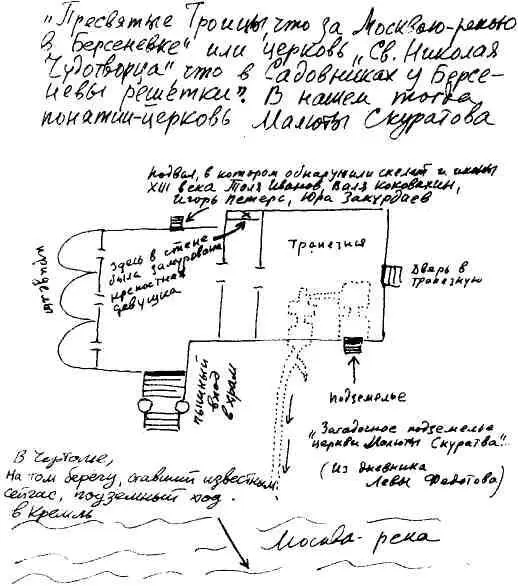 „Пресвятые Троицы, что за Москвою-рекою
в Берсеневке" или церковь „Св. Николая
Чудотворца" что в Садовниках у Берсе-
невы решетки". В нашем тогда
понятии-церковь Малюты Скуратова
Подвал, в котором обнаружили скелет и иконы
XIII века Толя Иванов, Валя Коковихин,
Игорь Петерс, Юра Закурдаев
Здесь в стене
была замурована
крепостная
девушка
Трапезная
Дверь в
трапезную
алтарная
пышный
вход
в храм
Подземелье
„Загадочное подземелье
церкви Малюты Скуратва"..
(Из дневника
Левы Федотова)
В Чертолье,
на том берегу, ставший известным
сейчас, подземный ход.
в Кремль
Москва-река